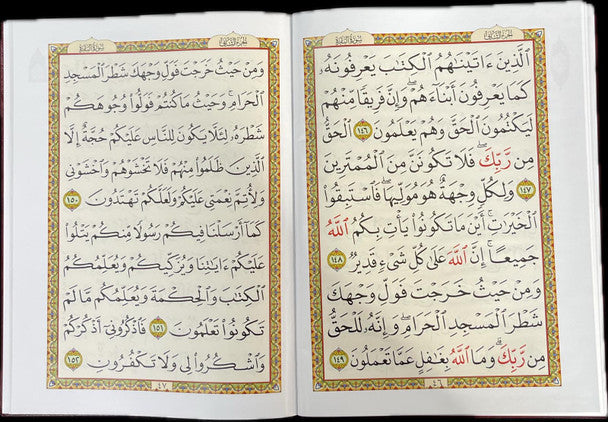 الجزء الثاني
سورة البقرة
ٱلَّذِينَ ءَاتَيْنَٰهُمُ ٱلْكِتَٰبَ يَعْرِفُونَهُۥ
كَمَا يَعْرِفُونَ أَبْنَآءَهُمْ ۖ وَإِنَّ فَرِيقًا مِّنْهُمْ
لَيَكْتُمُونَ ٱلْحَقَّ وَهُمْ يَعْلَمُونَ ١٤٦ ٱلْحَقُّ
مِن رَّبِّكَ ۖ فَلَا تَكُونَنَّ مِنَ ٱلْمُمْتَرِينَ
١٤٧ وَلِكُلٍّ وِجْهَةٌ هُوَ مُوَلِّيهَا ۖ فَٱسْتَبِقُوا۟
ٱلْخَيْرَٰتِ ۚ أَيْنَ مَا تَكُونُوا۟ يَأْتِ بِكُمُ ٱللَّهُ
جَمِيعًا ۚ إِنَّ ٱللَّهَ عَلَىٰ كُلِّ شَىْءٍ قَدِيرٌ ١٤٨
وَمِنْ حَيْثُ خَرَجْتَ فَوَلِّ وَجْهَكَ
شَطْرَ ٱلْمَسْجِدِ ٱلْحَرَامِ ۖ وَإِنَّهُۥ لَلْحَقُّ
مِن رَّبِّكَ ۗ وَمَا ٱللَّهُ بِغَٰفِلٍ عَمَّا تَعْمَلُونَ ١٤٩
٤٦
الجزء الثاني
سورة البقرة
وَمِنْ حَيْثُ خَرَجْتَ فَوَلِّ وَجْهَكَ شَطْرَ ٱلْمَسْجِدِ
ٱلْحَرَامِ ۚ وَحَيْثُ مَا كُنتُمْ فَوَلُّوا۟ وُجُوهَكُمْ
شَطْرَهُۥ لِئَلَّا يَكُونَ لِلنَّاسِ عَلَيْكُمْ حُجَّةٌ إِلَّا
ٱلَّذِينَ ظَلَمُوا۟ مِنْهُمْ فَلَا تَخْشَوْهُمْ وَٱخْشَوْنِى
وَلِأُتِمَّ نِعْمَتِى عَلَيْكُمْ وَلَعَلَّكُمْ تَهْتَدُونَ ١٥٠
كَمَآ أَرْسَلْنَا فِيكُمْ رَسُولًا مِّنكُمْ يَتْلُوا۟
عَلَيْكُمْ ءَايَٰتِنَا وَيُزَكِّيكُمْ وَيُعَلِّمُكُمُ
ٱلْكِتَٰبَ وَٱلْحِكْمَةَ وَيُعَلِّمُكُم مَّا لَمْ
تَكُونُوا۟ تَعْلَمُونَ ١٥١ فَٱذْكُرُونِىٓ أَذْكُرْكُمْ
وَٱشْكُرُوا۟ لِى وَلَا تَكْفُرُونِ ١٥٢
٤٧